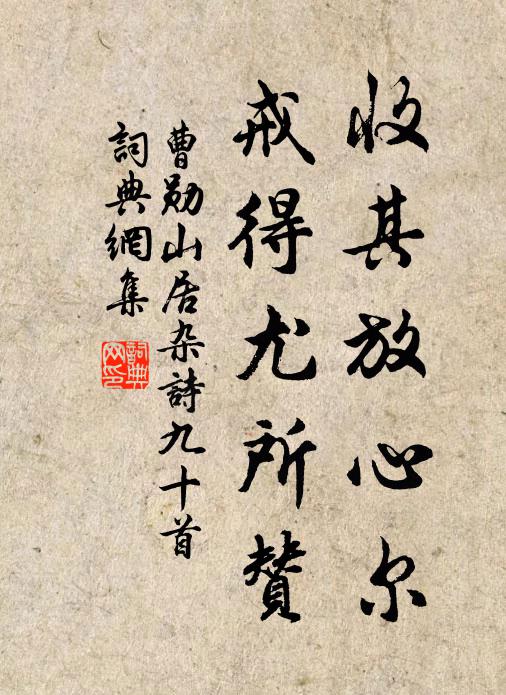 收其放心尔
戒得尤所赞
曹勋山居杂詩九十首
詞典網集
詞典網印